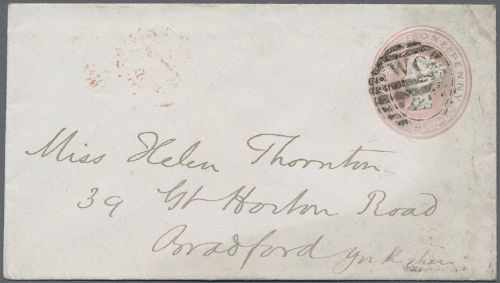 ONE PENNY
WC
Miss Helen Thornton
39 Gt Horton Road
Bradford Yorkshire